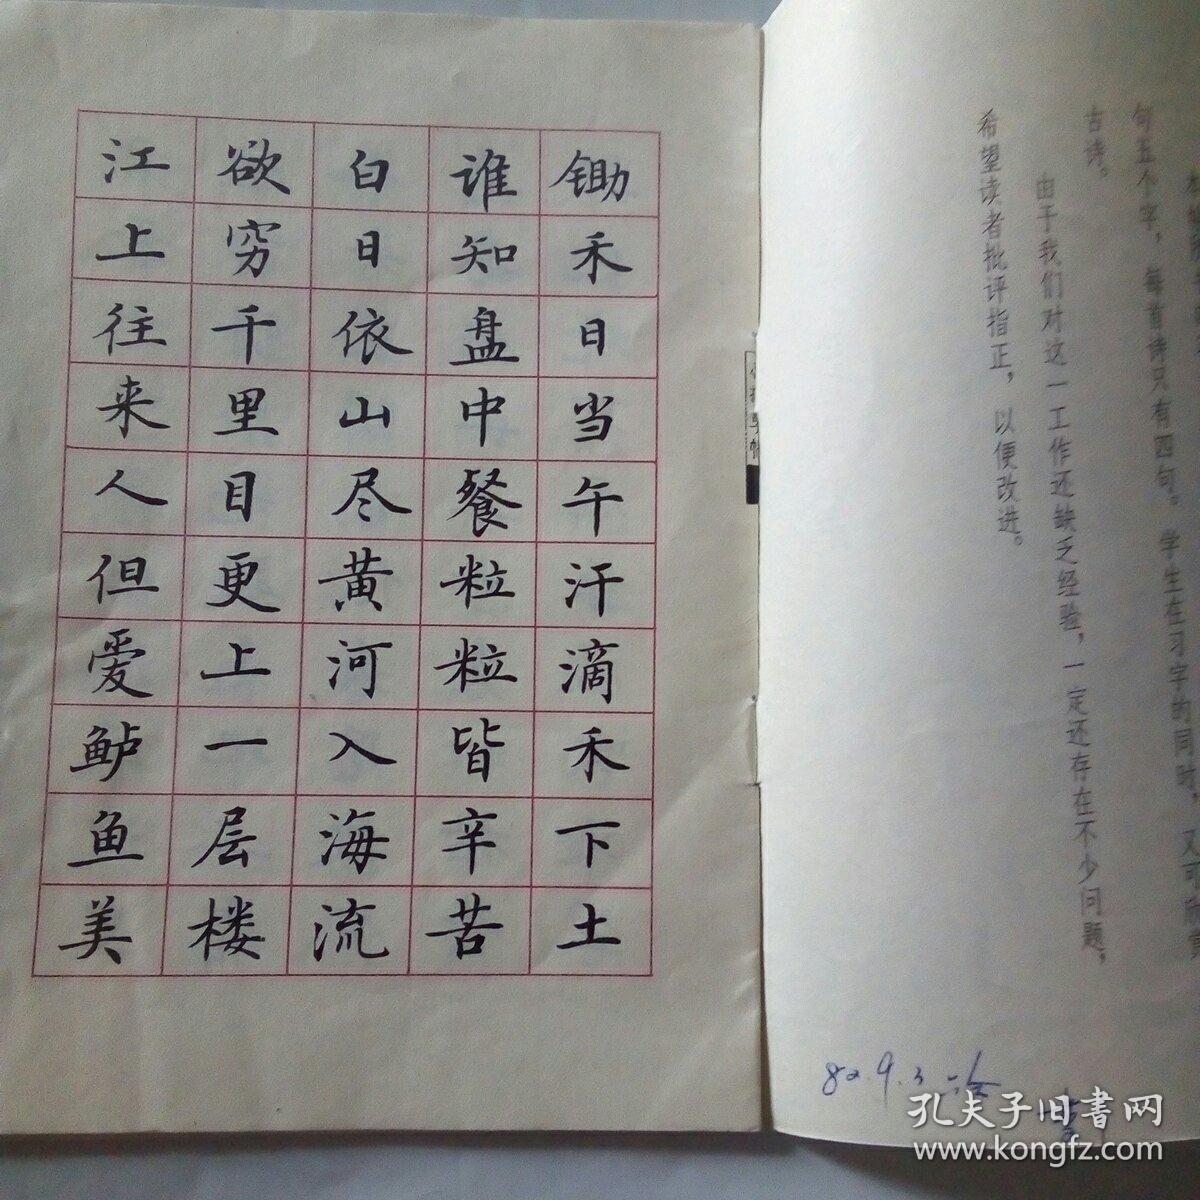 句五个字，每首诗只有四句。学生在习字的同时，又可
古诗。
由于我们对这一工作还缺乏经验，一定还存在不少问题，
希望读者批评指正，以便改进。
锄禾日当午汗滴禾下土
谁知盘中餐粒粒皆辛苦
白日依山尽黄河入海流
欲穷千里目更上一层楼
江上往来人但爱鲈鱼美
82.9.3
孔夫子旧书网
www.kongfz.com